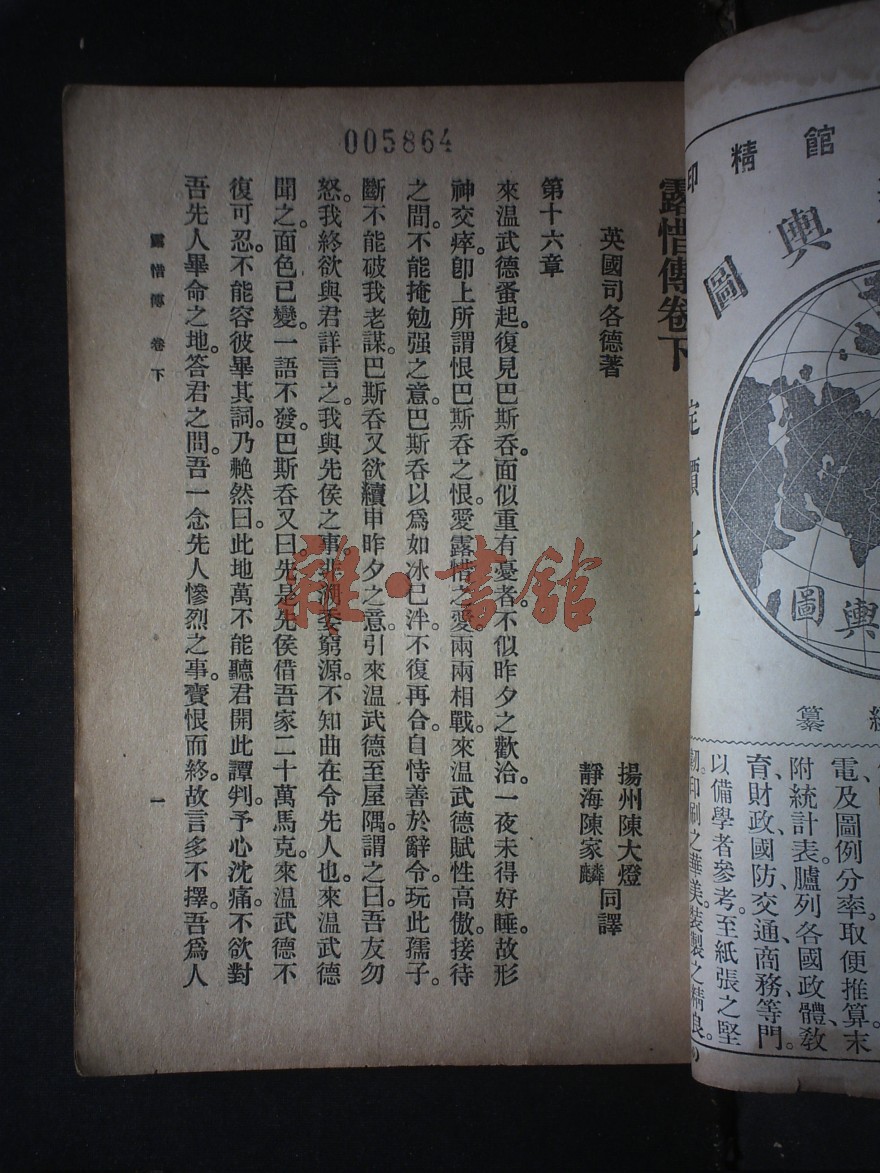 005864
露惜傳卷下
英國司各德著
揚州陳大燈
靜海陳家麟
同譯
第十六章
來温武德蚤起。復見巴斯吞。面似重有憂者。不似昨夕之歡洽。一夜未得好睡。故形
神交瘁。卽上所謂恨巴斯吞之恨。愛露惜之愛。兩兩相戰。來温武德賦性高傲。接待
之間。不能掩勉强之意。巴斯吞以爲如冰已泮。不復再合。自恃善於辭令。玩此孺子。
斷不能破我老謀。巴斯吞又欲續申昨夕之意。引來温武德至屋隅。謂之曰。吾友勿
怒。我終欲與君詳言之。我與先侯之事。非溯委窮源。不知曲在令先人也。來温武德
聞之。面色已變。一語不發。巴斯吞又曰。先是先侯借吾家二十萬馬克。來温武德不
復可忍。不能容彼畢其詞。乃艴然曰。此地萬不能聽君開此譚判。予心沈痛。不欲對
吾先人畢命之地。答君之問。吾一念先人慘烈之事。賫恨而終。故言多不擇。吾爲人
露惜傳 卷下
一
雜·書館
館精印
輿圖
輿圖
纂
電、及圖例分率。取便推算。末
附統計表。臚列各國政體、敎
育、財政、國防、交通、商務等門。
以備學者參考。至紙張之堅
韌。印刷之華美。裝製之精良。